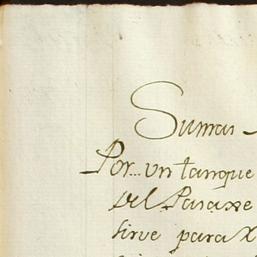 Suman
Por... un tanque
del Paraxe
sirve para